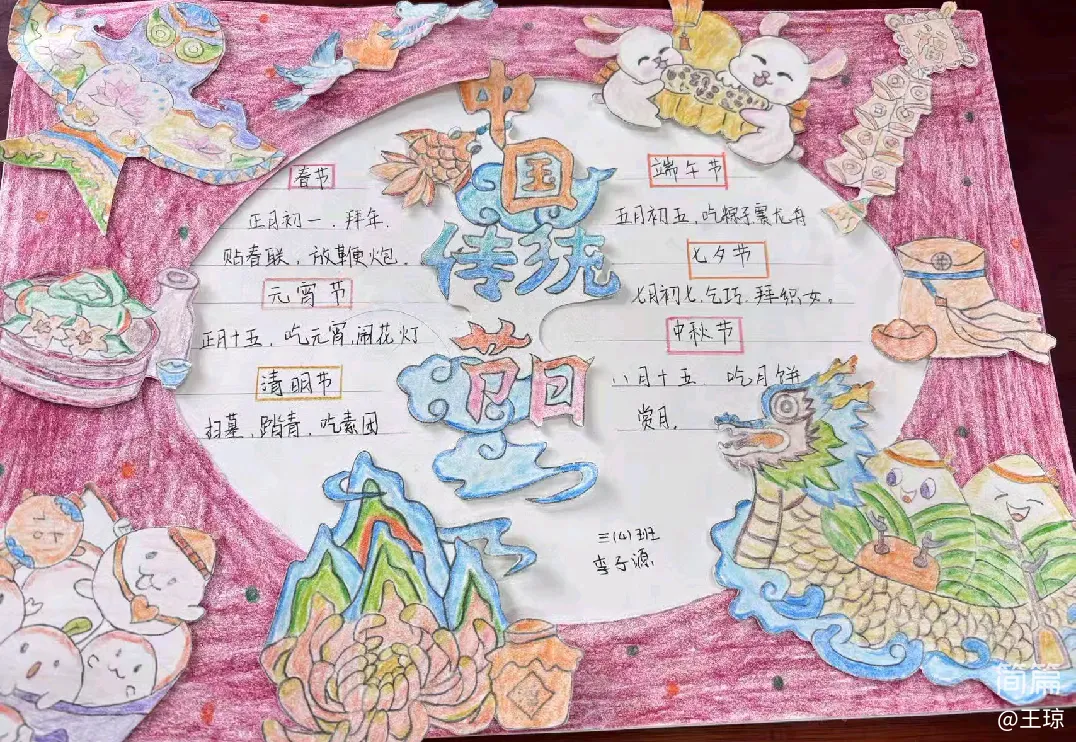 中国
传统
节日
春节
正月初一、拜年、
贴春联,放鞭炮。
元宵节
正月十五,吃元宵,闹花灯
清明节
扫墓、踏青、吃素团
端午节
五月初五,吃粽子赛龙舟
七夕节
七月初七,乞巧、拜织女。
中秋节
八月十五、吃月饼
赏月。
三(4)班
李子源
简篇
@王琼